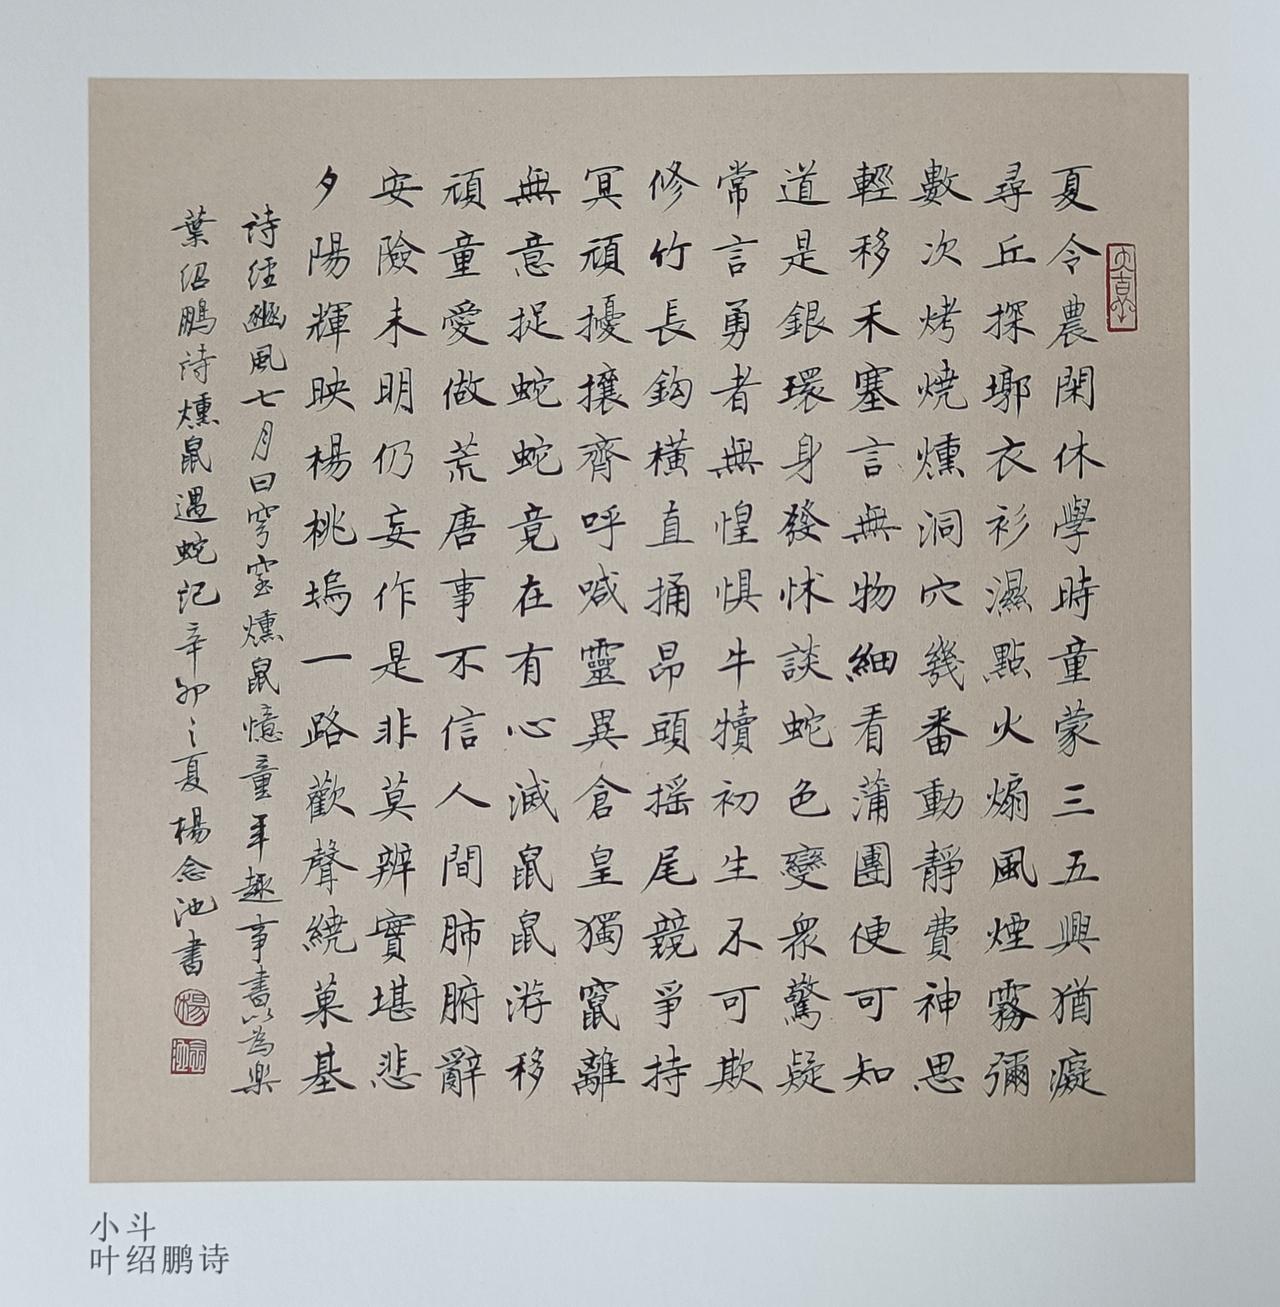 夏令農閑休學時童蒙三五興猶癡
尋丘探墎衣衫濕點火煽風煙霧彌
數次烤燒燻洞穴幾番動靜費神思
輕移禾塞言無物細看蒲團便可知
道是銀環身發怵談蛇色變衆驚疑
常言勇者無惶惧牛犢初生不可欺
修竹長鈎橫直捅昂頭摇尾競爭持
冥頑擾攘齊呼喊靈異倉皇獨竄離
無意捉蛇蛇竟在有心滅鼠鼠游移
頑童愛做荒唐事不信人間肺腑辭
安險未明仍妄作是非莫辨實堪悲
夕陽輝映楊桃塢一路歡聲繞菓基
詩經豳風七月曰穹窒燻鼠憶童年趣事書以為樂
葉紹鵬詩燻鼠遇蛇記辛卯之夏楊念池書
楊
小斗
叶绍鹏诗